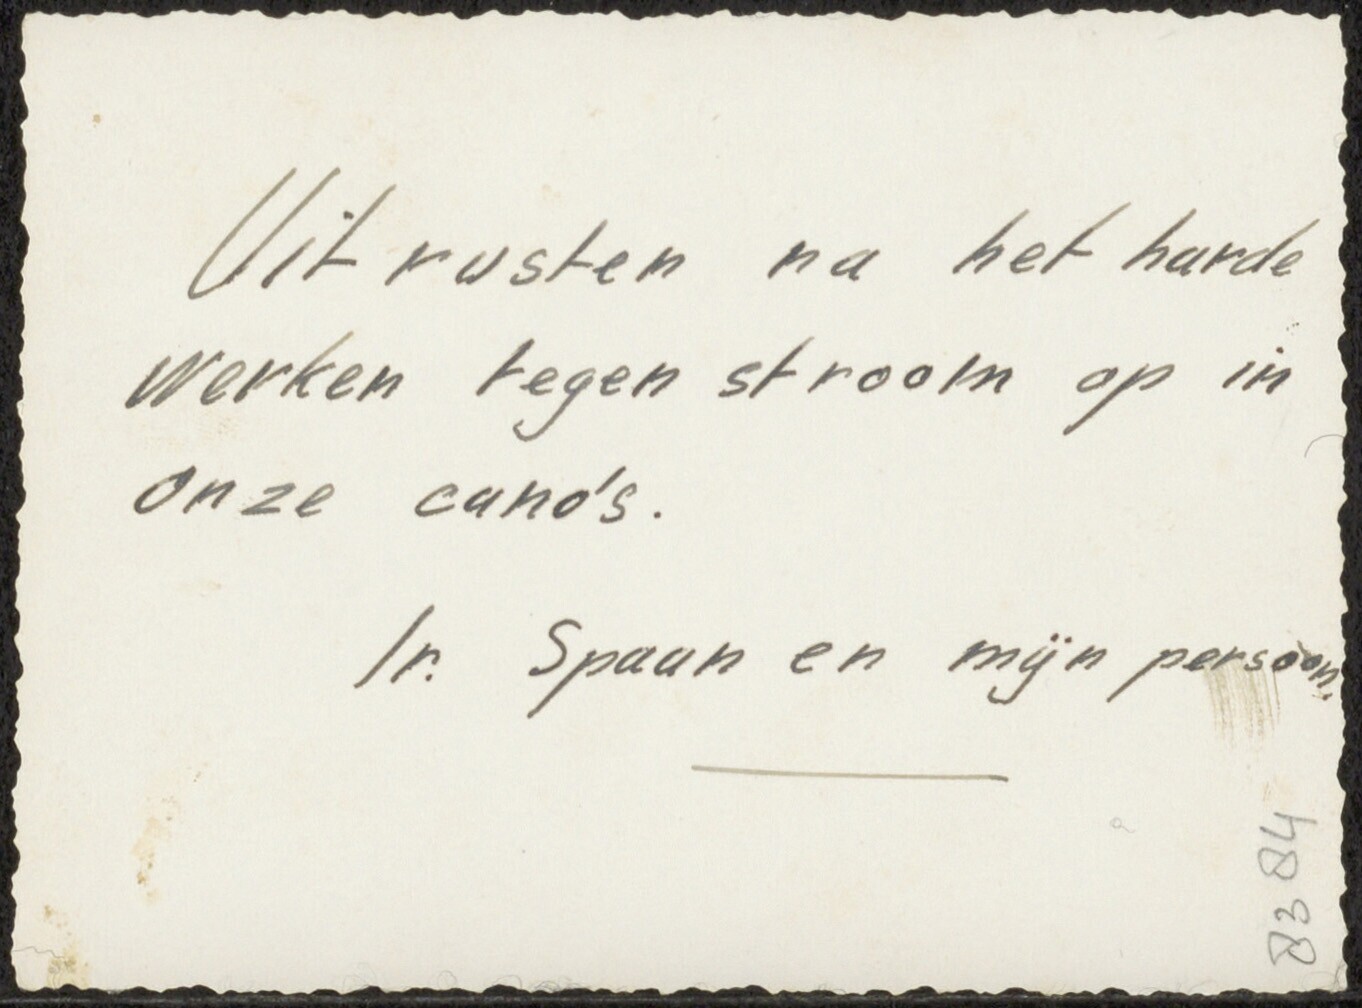 Uit rusten na het harde
werken tegen stroom op in
onze cano's.
Ir. Spaan en mijn persoon.
8384